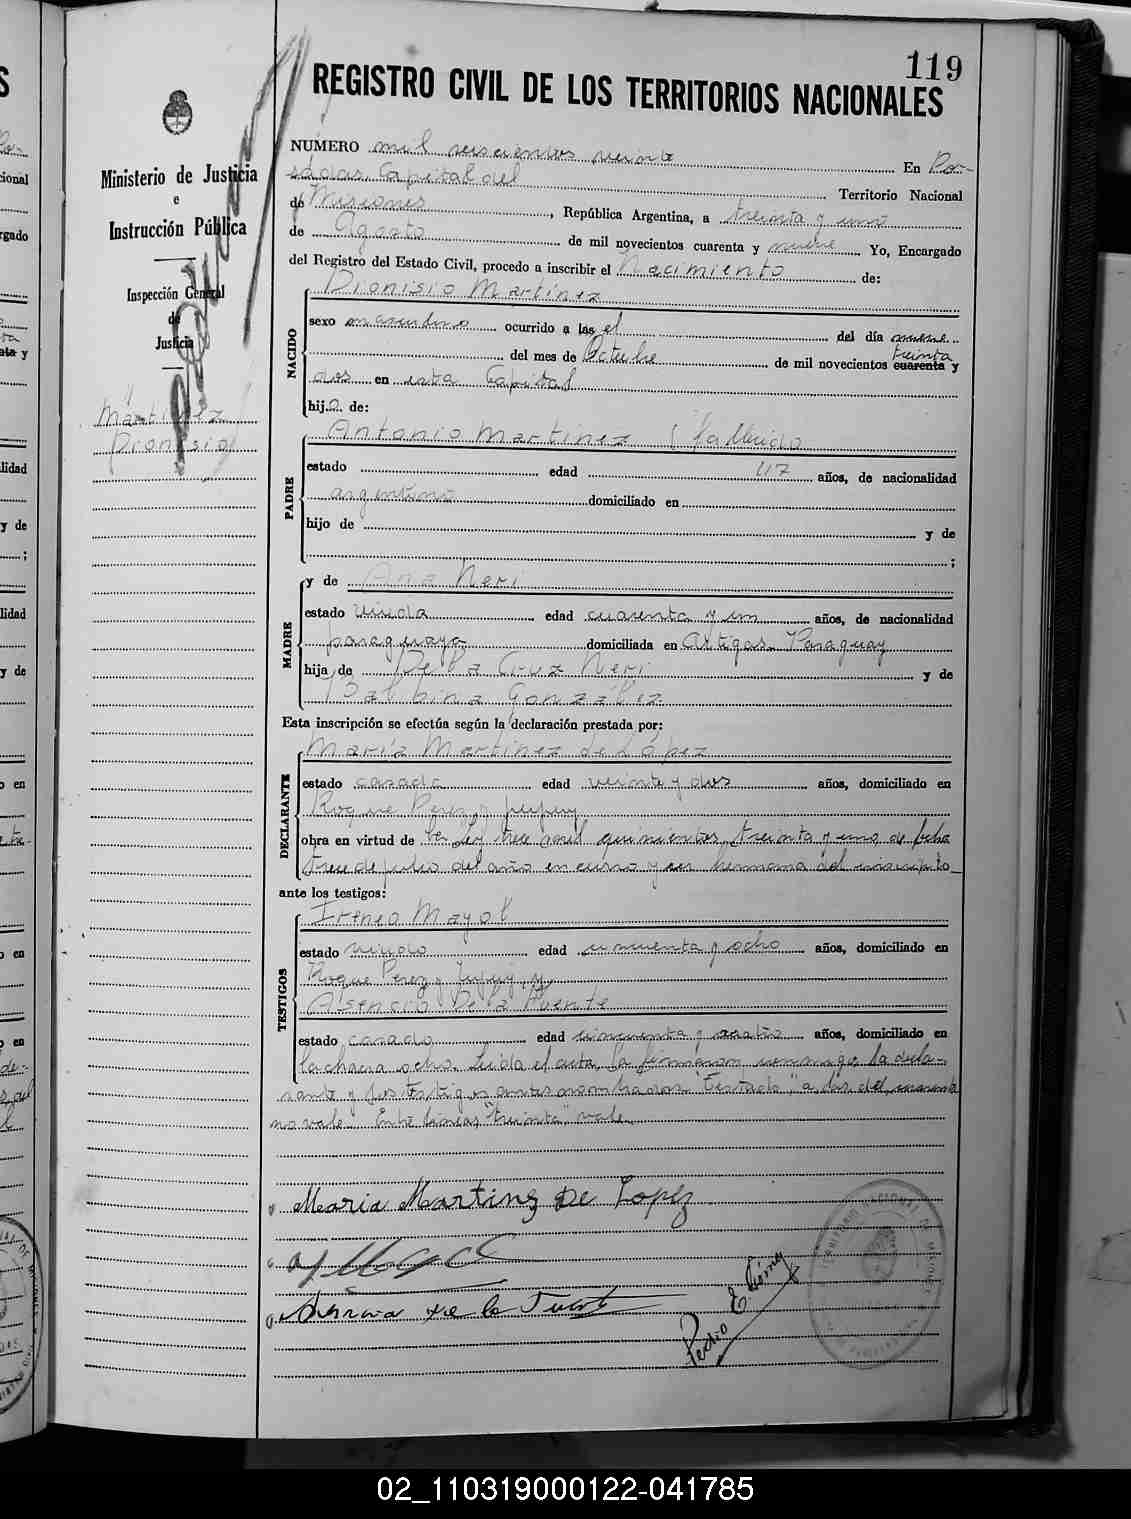 119
REGISTRO CIVIL DE LOS TERRITORIOS NACIONALES
Ministerio de Justicia
e
Instrucción Pública
Inspección General
de
Justicia
Martinez
Dionisio
NÚMERO mil seiscientos veinte En Po-
sadas, Capital del Territorio Nacional
de Misiones, República Argentina, a treinta y uno
de Agosto de mil novecientos cuarenta y nueve Yo, Encargado
del Registro del Estado Civil, procedo a inscribir el Nacimiento de:
NACIDO
Dionisio Martinez
sexo masculino ocurrido a las el del día nueve
del mes de Octubre de mil novecientos cuarenta y
treinta
dos en esta Capital
hijo de:
PADRE
Antonio Martinez (fallecido
estado edad 47 años, de nacionalidad
argentino domiciliado en
hijo de y de
;
MADRE
y de Ana Neri
estado viuda edad cuarenta y un años, de nacionalidad
paraguaya domiciliada en Artigas. Paraguay
hija de De la Cruz Neri y de
Balbina González.
Esta inscripción se efectúa según la declaración prestada por:
DECLARANTE
María Martínez de López
estado casada edad veinte y dos años, domiciliado en
Roque Perez y Jujuy
obra en virtud de la Ley trece mil quinientos treinta y uno de fecha
trece de julio del año en curso y ser hermana del inscripto
ante los testigos:
TESTIGOS
Ireneo Mayol
estado viudo edad cincuenta y ocho años, domiciliado en
Roque Perez y Jujuy y
Asencio De la Puente
estado casado edad cincuenta y cuatro años, domiciliado en
la chacra ocho. Leida el acta, la firmaron conmigo la decla-
rante y los testigos antes nombrados. Testado, "a las, del, cuarenta
no vale. Entre lineas, "treinta", vale.
Maria Martinez De Lopez
de la
Pedro E.
TERRITORIO NACIONAL DE MISIONES
02_110319000122-041785